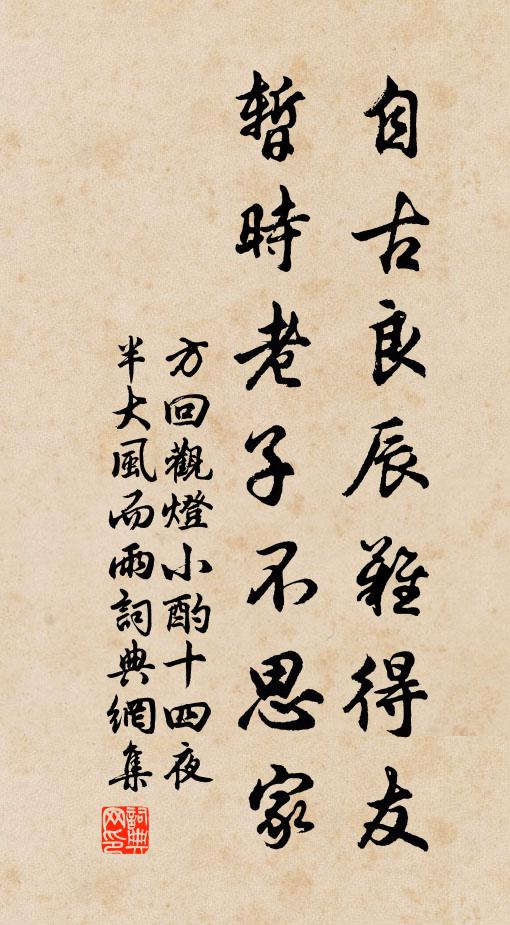 自古良辰難得友
暫時老子不思家
方回觀燈小酌十四夜
半大風而雨詞典網集
詞典网印